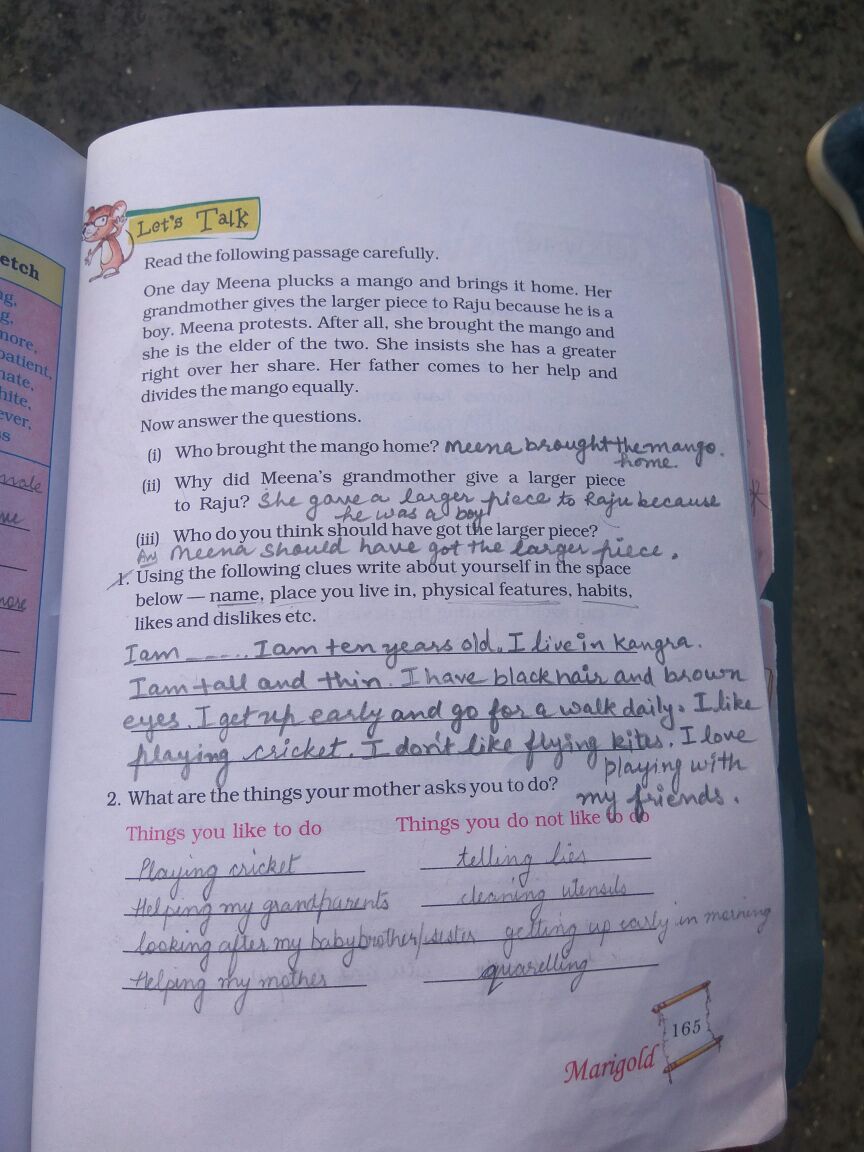 etch
g,
g,
more,
patient,
nate,
hite,
ever,
s
more
Let's Talk
Read the following passage carefully.
One day Meena plucks a mango and brings it home. Her
grandmother gives the larger piece to Raju because he is a
boy. Meena protests. After all, she brought the mango and
she is the elder of the two. She insists she has a greater
right over her share. Her father comes to her help and
divides the mango equally.
Now answer the questions.
(i) Who brought the mango home? Meena brought the mango.
home.
(ii) Why did Meena's grandmother give a larger piece
to Raju? She gave a larger piece to Raju because
he was a boy
(iii) Who do you think should have got the larger piece?
Ans Meena should have got the larger piece.
1. Using the following clues write about yourself in the space
below — name, place you live in, physical features, habits,
likes and dislikes etc.
I am ---.. I am ten years old. I live in Kangra.
I am tall and thin. I have black hair and brown
eyes. I get up early and go for a walk daily. I like
playing cricket. I don't like flying kites. I love
playing with
my friends.
2. What are the things your mother asks you to do?
Things you like to do Things you do not like to do
Playing cricket telling lies
Helping my grandparents cleaning utensils
looking after my baby brother/sister getting up early in morning
Helping my mother quarelling
165
Marigold